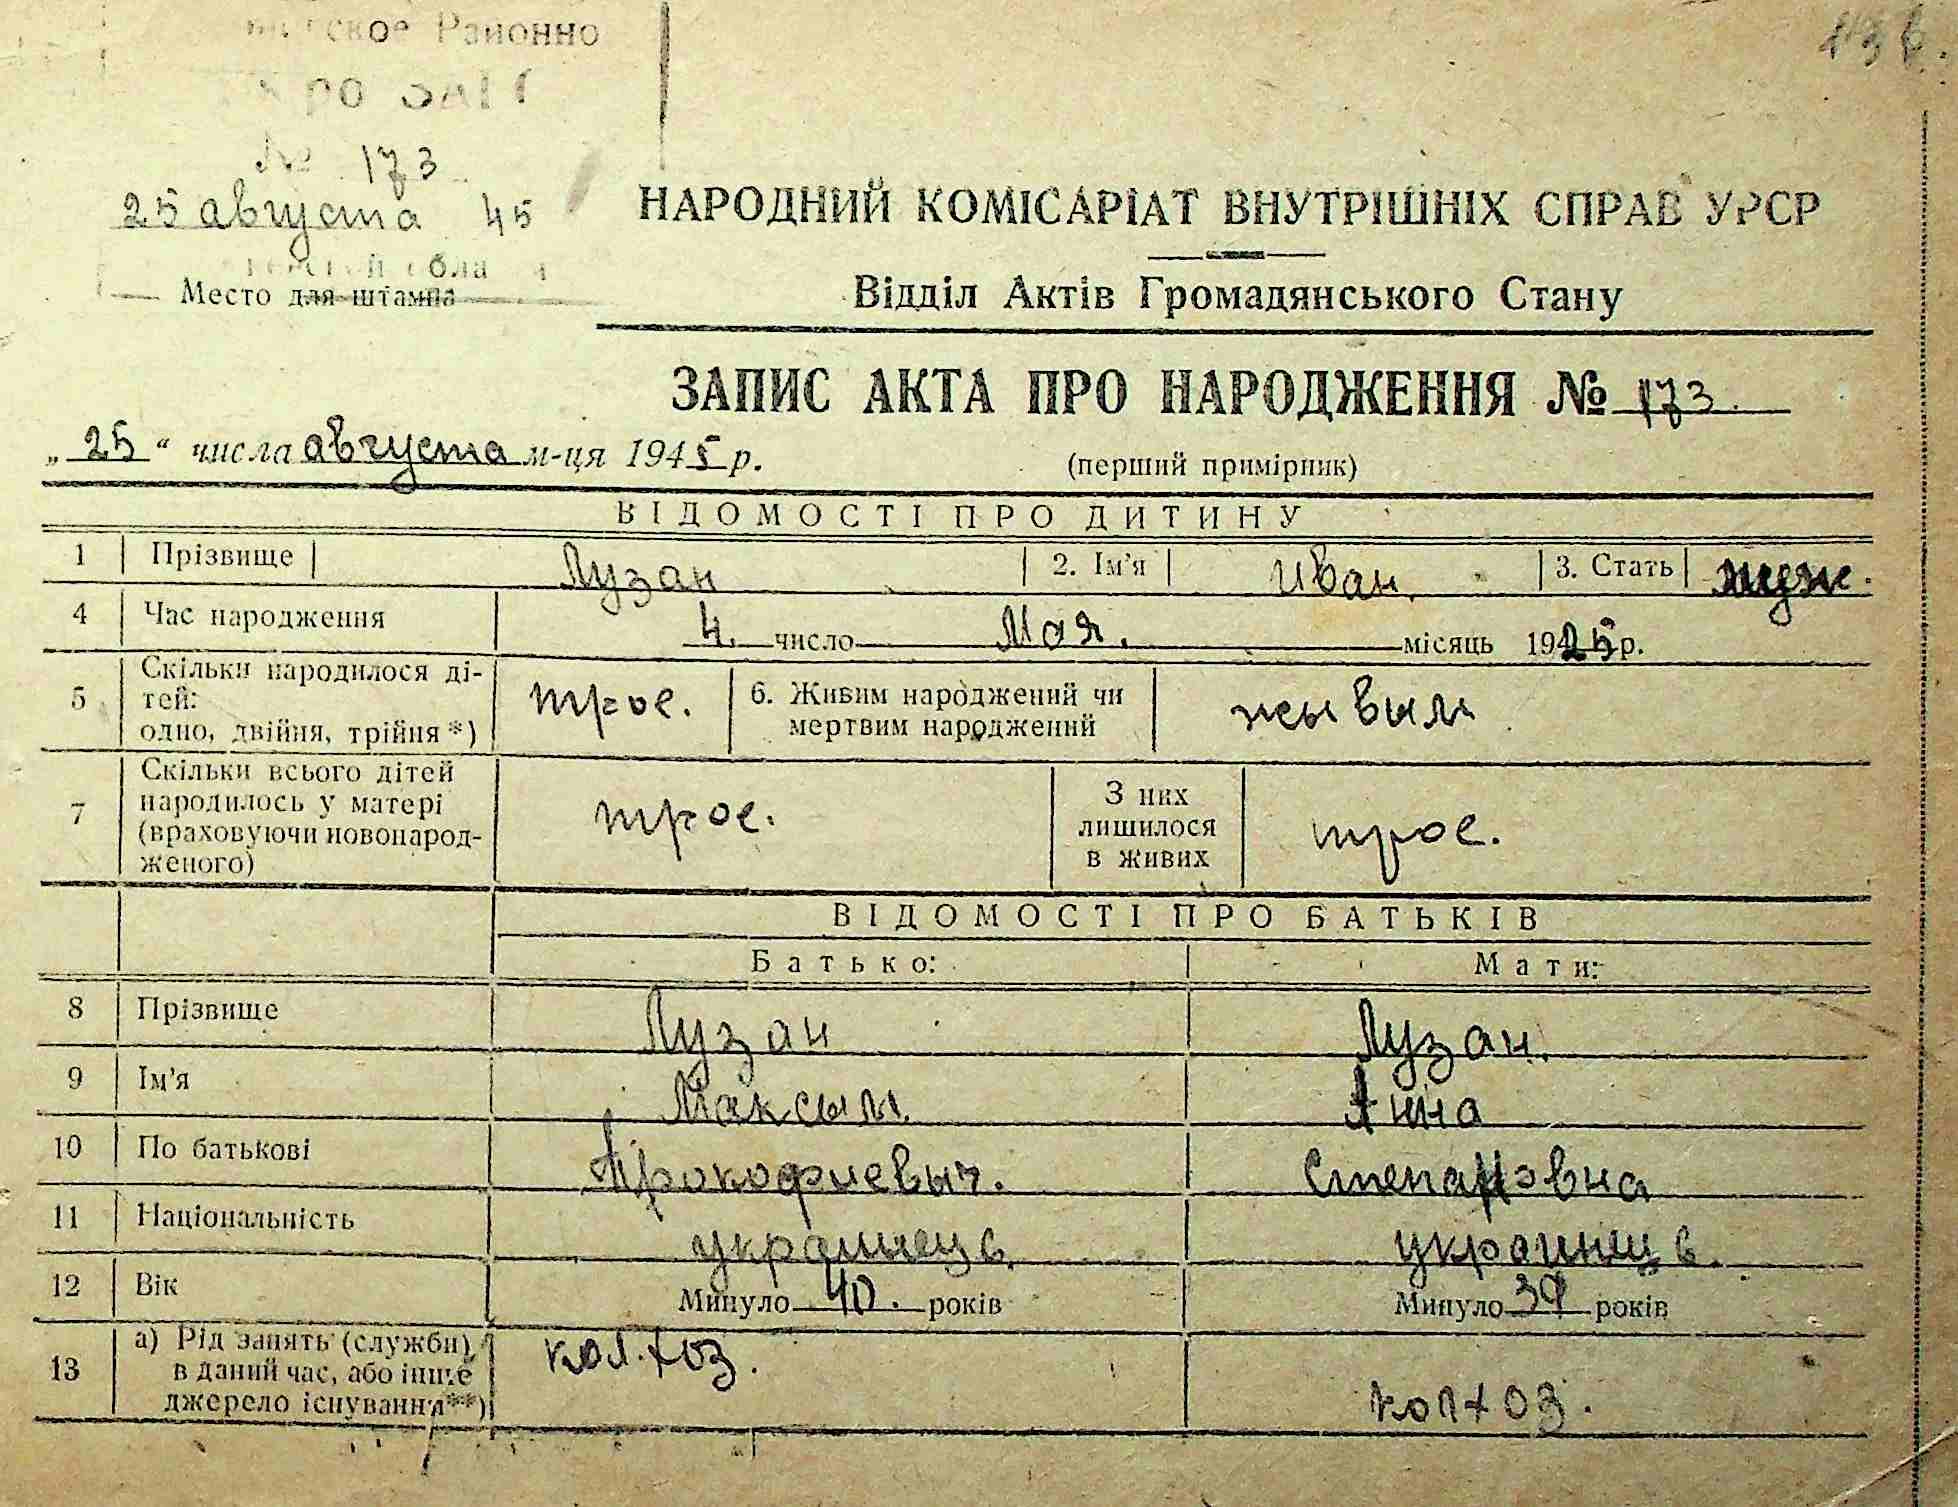 Районно
№ 173
25 августа 45
Место для штампа
НАРОДНИЙ КОМІСАРІАТ ВНУТРІШНІХ СПРАВ УРСР
Відділ Актів Громадянського Стану
ЗАПИС АКТА ПРО НАРОДЖЕННЯ № 173.
„25“ числа августа м-ця 1945 р.
(перший примірник)
ВІДОМОСТІ ПРО ДИТИНУ
1 Прізвище Лузан 2. Ім'я Иван. 3. Стать муж.
4 Час народження 4. число Мая. місяць 1925 р.
5 Скільки народилося ді-
тей:
одно, двійня, трійня *) трое. 6. Живим народжений чи
мертвим народжений жывым
7 Скільки всього дітей
народилось у матері
(враховуючи новонарод-
женого) трое. З них
лишилося
в живих трое.
ВІДОМОСТІ ПРО БАТЬКІВ
Батько: Мати:
8 Прізвище Лузан Лузан.
9 Ім'я Максым. Анна
10 По батькові Прокофиевыч. Степановна
11 Національність украинець украинець.
12 Вік Минуло 40. років Минуло років
13 а) Рід занять (служби)
в даний час, або інше
джерело існування **) колхоз. колхоз.